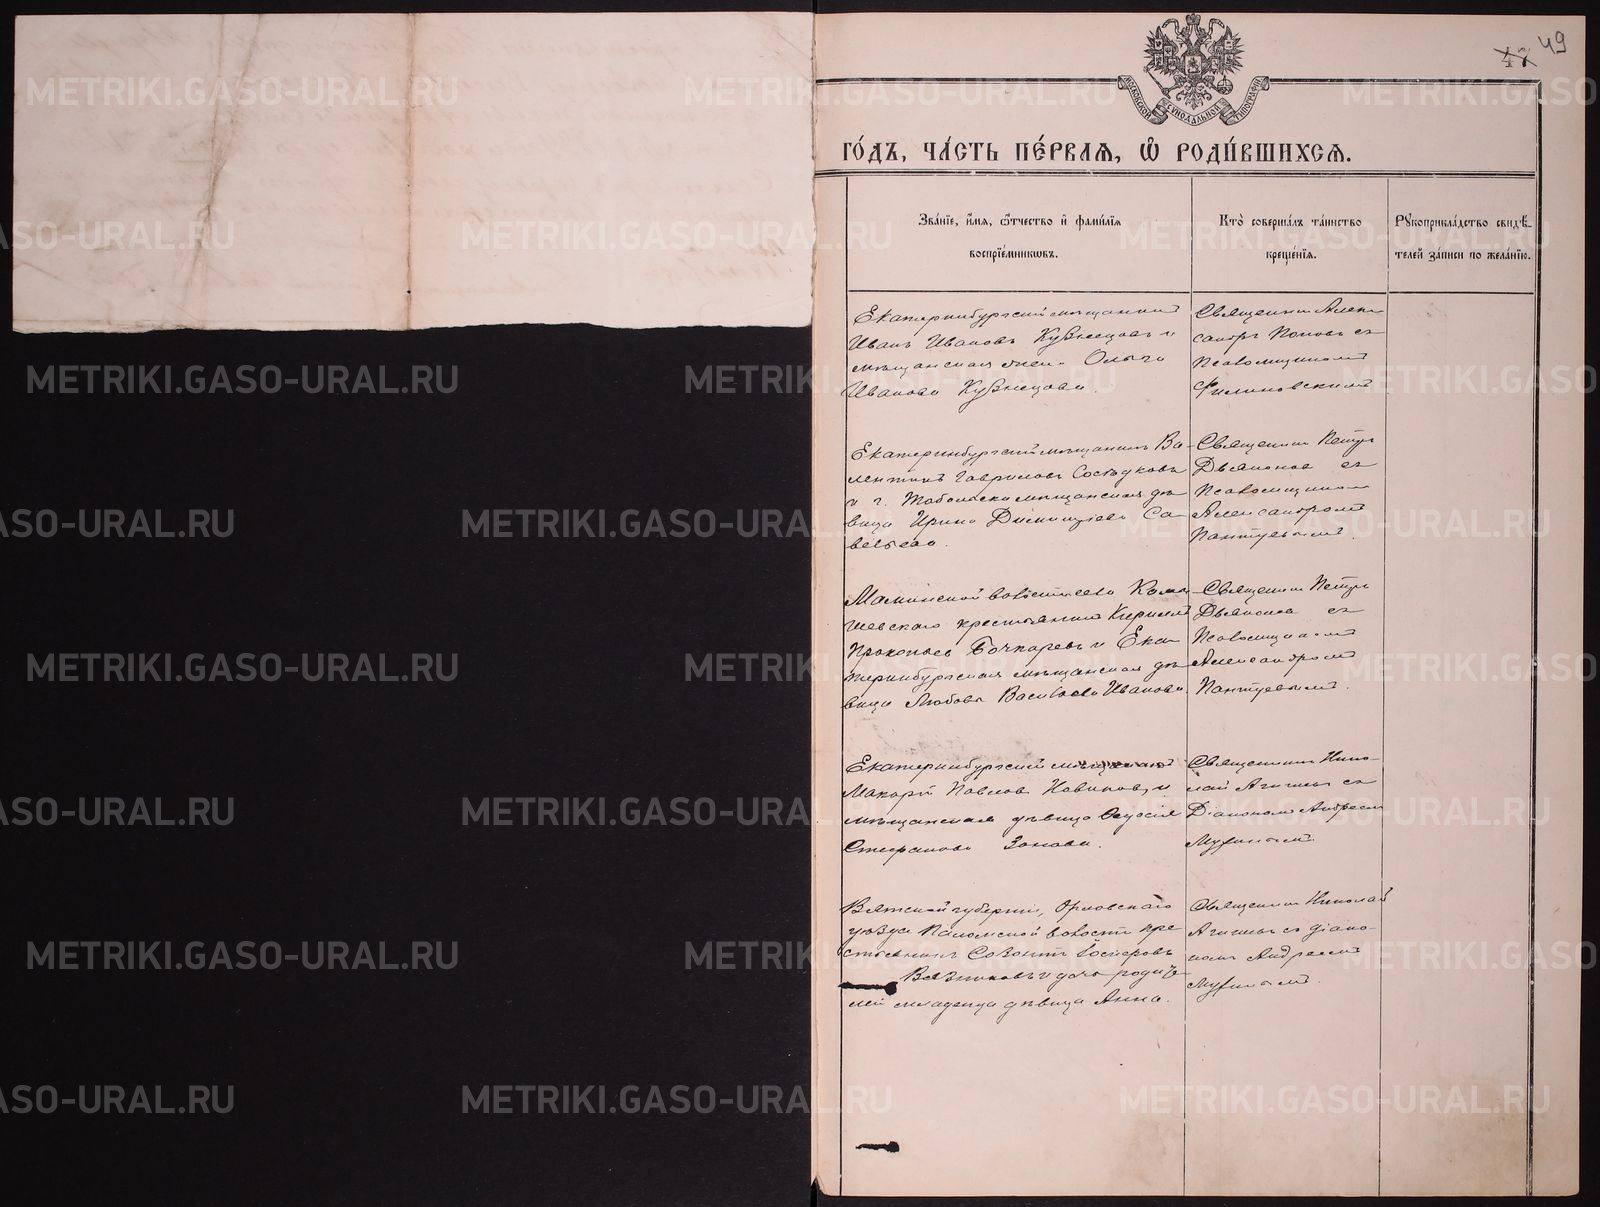 49
47
МОСКОВСКОЙ СѴНОДАЛЬНОЙ ТИПОГРАФІИ
ГО́ДЪ, ЧА́СТЬ ПЕ́РВАѦ, Ѽ РОДИ́ВШИХСѦ.
Зва́нїе, и҆́мѧ, ѻ҆́тчество и҆ фами́лїѧ
воспрїе́мникѡвъ.
Кто̀ соверша́лъ та́инство
креще́нїѧ.
Рꙋкоприкла́дство свидѣ́-
телей за́писи по жела́нїю.
Екатеринбургскій мѣщанинъ
Иванъ Ивановъ Кузнецовъ и
мѣщанская Ольга
Иванова Кузнецова.
Священникъ Алек-
сандръ Поповъ съ
Псаломщикомъ
Филиновскимъ
Екатеринбургскій мѣщанинъ Ва-
лентинъ Гавриловъ Сосѣдковъ
и г. Тобольска мѣщанская дѣ-
вица Ирина Димитріева Са-
вельева.
Священникъ Петръ
Дьяконовъ съ
Псаломщикомъ
Александромъ
Пантуевымъ.
Маминской волости села
шевскаго крестьянинъ Кириллъ
Прокопьевъ Бочкаревъ и Ека-
теринбургская мѣщанская дѣ-
вица Любовь Васильева Иванова.
Священникъ Петръ
Дьяконовъ съ
Псаломщикомъ
Александромъ
Пантуевымъ.
Екатеринбургскій мѣщанинъ
Макарій Павловъ Новиковъ и
мѣщанская дѣвица
Стефанова Зонова.
Священникъ Нико-
лай Агишевъ съ
Діакономъ Андреемъ
Вятской губерніи, Орловскаго
уѣзда Паломской волости кре-
стьянинъ
Вязниковъ и дочь родите-
лей младенца дѣвица Анна.
Священникъ Николай
Агишевъ съ діако-
номъ Андреемъ
METRIKI.GASO-URAL.RU